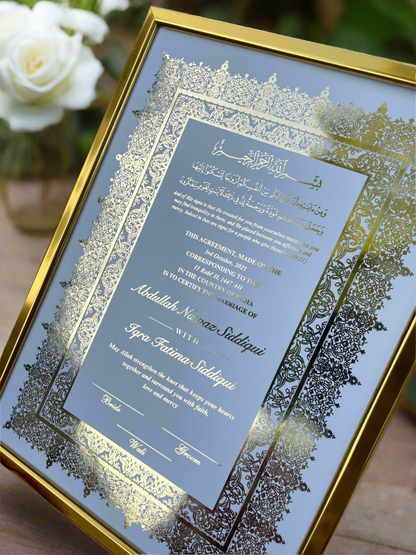 بِسْمِ اللَّهِ الرَّحْمَٰنِ الرَّحِيمِ
وَمِنْ آيَاتِهِ أَنْ خَلَقَ لَكُم مِّنْ أَنفُسِكُمْ أَزْوَاجًا لِّتَسْكُنُوا إِلَيْهَا
وَجَعَلَ بَيْنَكُم مَّوَدَّةً وَرَحْمَةً إِنَّ فِي ذَٰلِكَ لَآيَاتٍ لِّقَوْمٍ يَتَفَكَّرُونَ
And of His signs is that He created for you from yourselves mates that you
may find tranquility in them; and He placed between you affection and
mercy. Indeed in that are signs for a people who give thought.
THIS AGREEMENT, MADE ON THE
3rd October, 2025
CORRESPONDING TO THE
11 Rabi' II, 1447 AH
IN THE COUNTRY OF INDIA
IS TO CERTIFY THE MARRIAGE OF
Abdullah Nawaz Siddiqui
WITH
Iqra Fatima Siddiqui
May Allah strengthen the knot that keeps your hearts
together and surround you with faith,
love and mercy
Bride
Groom
Wali